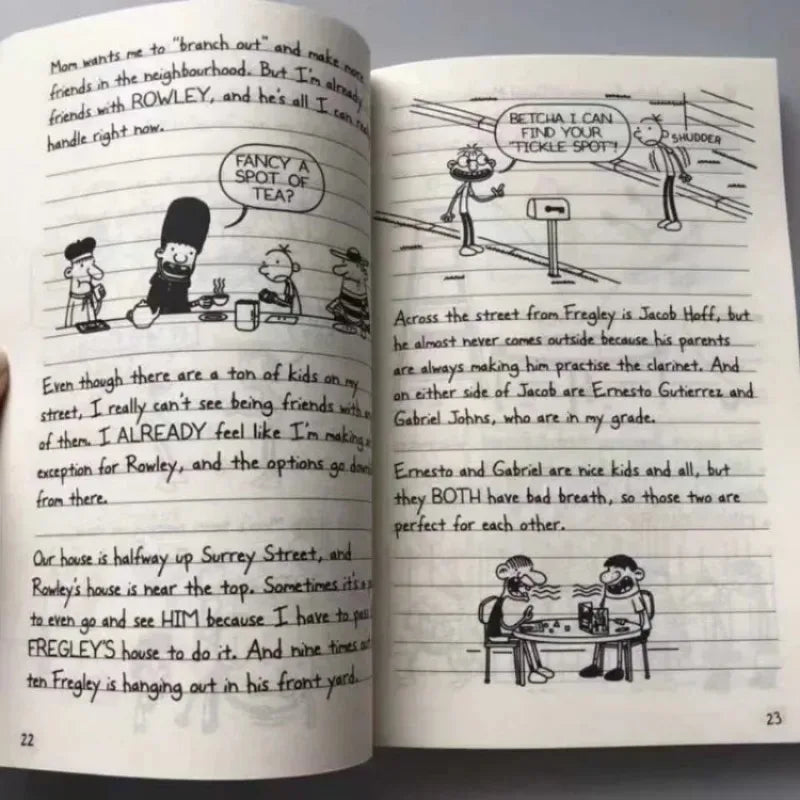 Mom wants me to "branch out" and make more
friends in the neighbourhood. But I'm already
friends with ROWLEY, and he's all I can
handle right now.
FANCY A
SPOT OF
TEA?
Even though there are a ton of kids on my
street, I really can't see being friends with
of them. I ALREADY feel like I'm making
exception for Rowley, and the options go down
from there.
Our house is halfway up Surrey Street, and
Rowley's house is near the top. Sometimes it's a
to even go and see HIM because I have to pass
FREGLEY'S house to do it. And nine times out
ten Fregley is hanging out in his front yard.
22
BETCHA I CAN
FIND YOUR
"TICKLE SPOT"!
SHUDDER
Across the street from Fregley is Jacob Hoff, but
he almost never comes outside because his parents
are always making him practise the clarinet. And
on either side of Jacob are Ernesto Gutierrez and
Gabriel Johns, who are in my grade.
Ernesto and Gabriel are nice kids and all, but
they BOTH have bad breath, so those two are
perfect for each other.
23